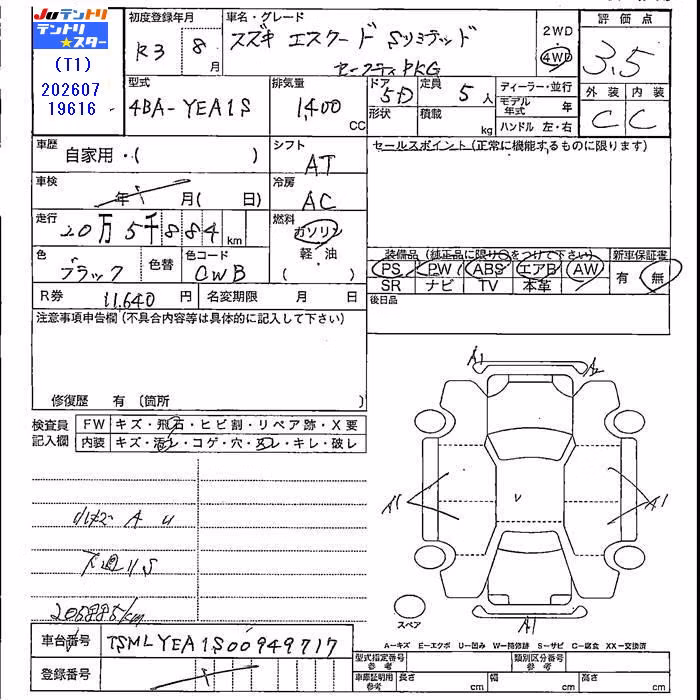 JUテントリ
テントリ
★スター
(T1)
202607
19616
初度登録年月
R3 8 月
車名・グレード
スズキ エスクード Sリミテッド
セーフティPKG
2WD
4WD
評価点
3.5
外装 内装
C C
型式
4BA-YEA1S
排気量
1,400 CC
ドア 5D
形状
定員 5 人
積載 kg
ディーラー・並行
モデル年式 年
ハンドル 左・右
車歴
自家用・( )
シフト
AT
セールスポイント(正常に機能するものに限ります)
車検
年 月( 日)
冷房
AC
走行
20万5千884 km
燃料
ガソリン
(軽・油)
色
ブラック
色替
色コード
CWB
装備品(純正品に限り○をつけて下さい)
PS PW ABS エアB AW
SR ナビ TV 本革
新車保証書
有 無
R券 11,640 円
名変期限 月 日
後日品
注意事項申告欄(不具合内容等は具体的に記入して下さい)
修復歴 有(箇所 )
検査員
記入欄
FW キズ・飛石・ヒビ割・リペア跡・X要
内装 キズ・汚レ・コゲ・穴・スレ・キレ・破レ
A U
下廻りS
205885km
A1 A2
A1 U A1
A1
スペア
車台番号 TSMLYEA1S00949717
登録番号
A-キズ E-エクボ U-凹み W-補修跡 S-サビ C-腐食 XX-交換済
型式指定番号 参考
類別区分番号 参考
車庫証明用 参考
長さ cm 幅 cm 高さ cm